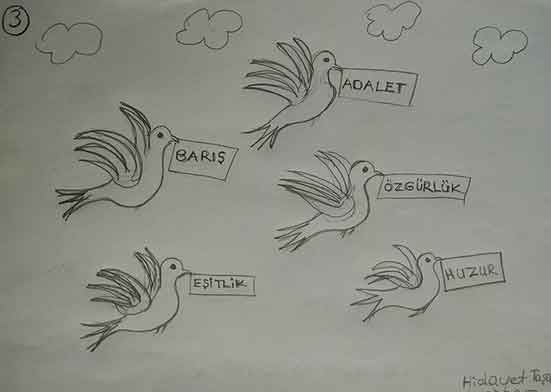 3
ADALET
BARIŞ
ÖZGÜRLÜK
EŞİTLİK
HUZUR
Hidayet